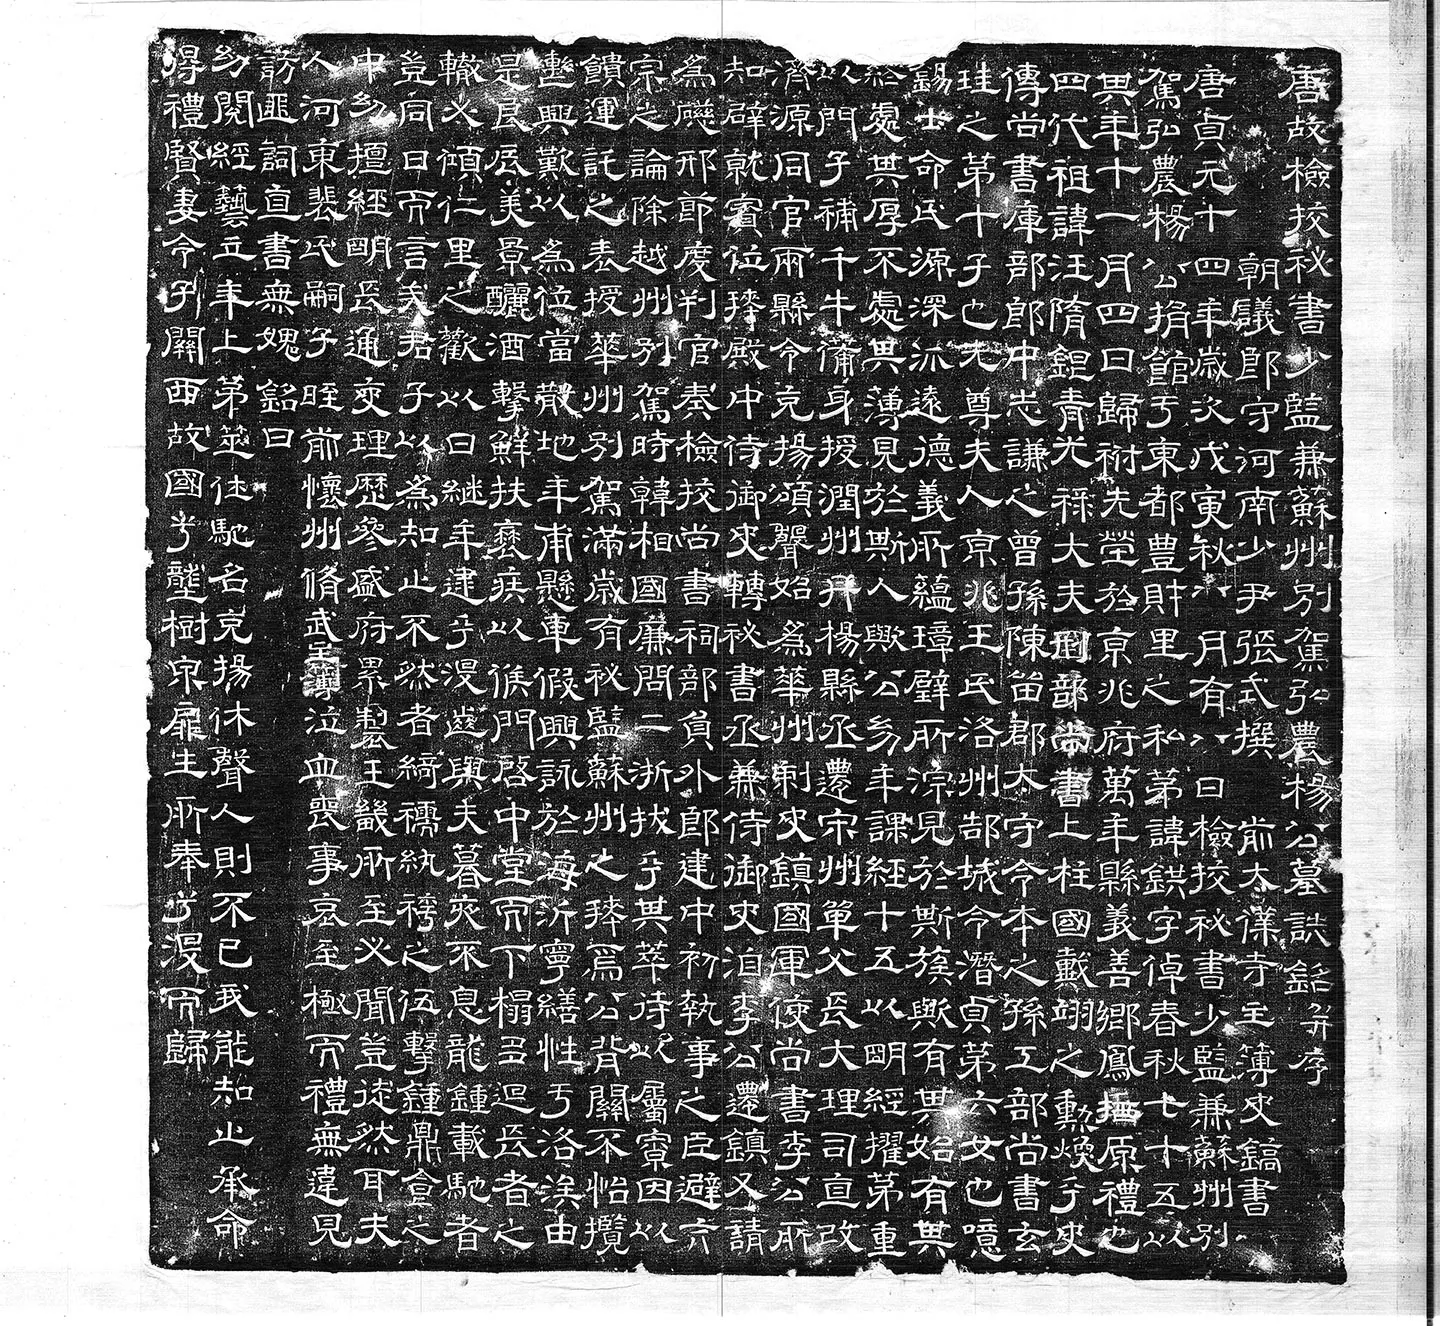 唐故檢挍秘書少監兼蘇州別駕弘農楊公墓誌銘并序
朝議郎守河南少尹張式撰 前太僕寺主簿史鎬書
唐貞元十四年歲次戊寅秋八月有八日檢挍秘書少監兼蘇州別
駕弘農楊公捐館于東都豊財里之私第諱鉷字倬春秋七十五以
其年十一月四日歸祔先塋於京兆府萬年縣義善鄉鳳栖原禮也
四代祖諱汪隋銀青光祿大夫國部尚書上柱國戴翊之勳煥乎史
傳尚書庫部郎中志謙之曾孫陳留郡太守令本之孫工部尚書玄
珪之第十子也先尊夫人京兆王氏洛州郜城令潛貞第六女也噫
錫士命氏源深派遠德義所蘊璋璧所淙見於斯族歟有其始有其
給處其厚不處其薄見於斯人歟公幼年課經十五以明經擢第重
以門子補千牛備身授潤州丹楊縣丞遷宋州單父長大理司直改
濟源同官兩縣令克揚頌聲始為華州刺史鎮國軍使尚書李公所
知辟就賓位拜殿中侍御史轉祕書丞兼侍御史洎李公遷鎮又請
為懸邢節度判官奏檢挍尚書祠部員外郎建中初執事之臣避亢
宗之論除越州別駕時韓相國廉問二浙拔乎其萃待以屬寮因以
饋運託之表授華州別駕滿歲有祕監蘇州之拜焉公背關不怡攬
轡興歎以為位當散地年甫懸車假興詠於海沂寧繕性于洛涘由
是良辰美景釃酒擊鮮扶衰疾以候門啓中堂而下榻多迴長者之
轍必傾仁里之歡以曰繼年逮乎沒齒與夫暮夾不息龍鍾載馳者
豈同日而言矣君子以為知止不然者綺襦紈袴之伍擊鍾鼎食之
中幼擅經明長通吏理歷參盛府累製王畿所至必聞豈徒然耳夫
人河東裴氏嗣子眰前懷州脩武主簿泣血喪事哀至極而禮無違見
訪匪詞直書無媿 銘曰
幼閱經藝立年上第筮仕馳名克揚休聲人則不已我能知止承命
得禮賢妻令子關西故國兮壟樹宗扉生所奉兮沒而歸